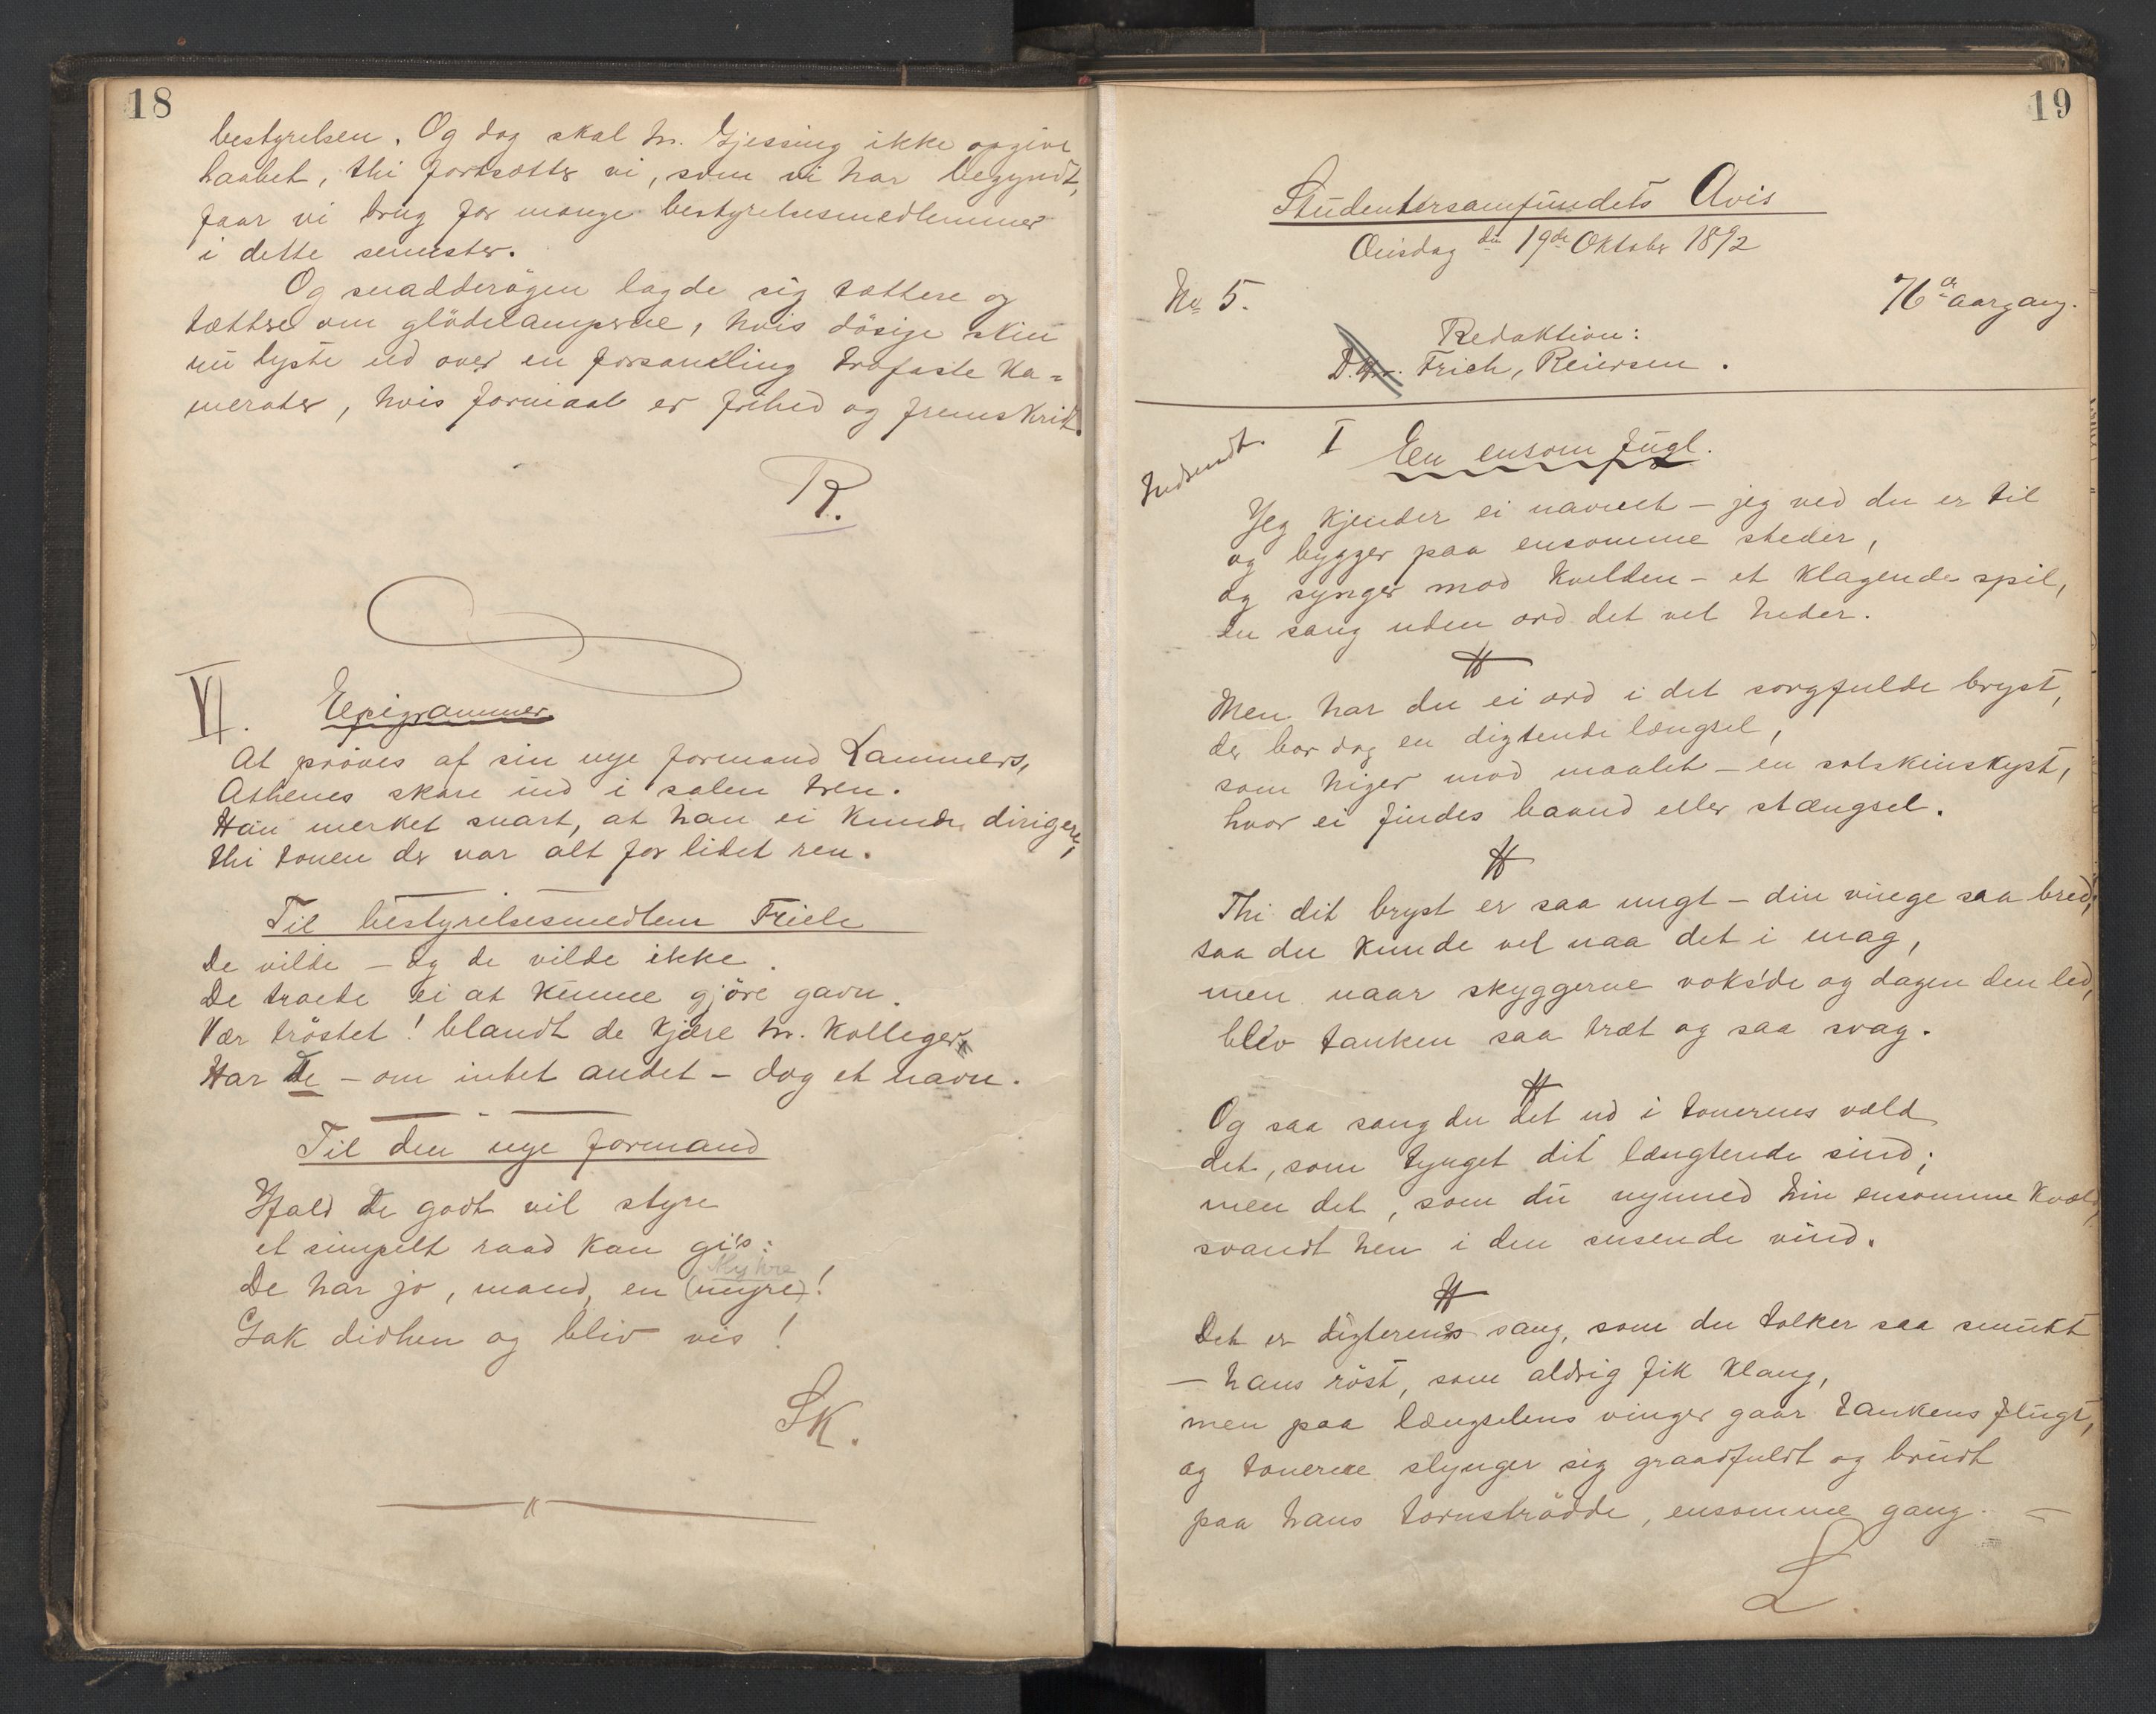 18
bestyrelsen. Og dog skal hr. Gjessing ikke opgive
haabet, thi fortsætter vi, som vi har begyndt,
faar vi brug for mange bestyrelsesmedlemmer
i dette semester.
Og snadderögen lagde sig tættere og
tættre om glödelamperne, hvis dösige skin
nu lyste ud over en forsamling trofaste Ka=
merater, hvis formaal er frihed og fremskridt.
R.
VI. Epigrammer.
At pröves af sin nye formand Lammers,
Athenes skare ind i salen tren.
Han merket snart, at han ei kunde dirigere,
thi tonen der var alt for lidet ren.
Til bestyrelsesmedlem Friele
De vilde – og de vilde ikke.
De troede ei at kunne gjöre gavn.
Vær tröstet! blandt de kjære hr. Kolleger
Har De – om intet andet – dog et navn.
Til den nye formand
Ifald De godt vil styre
et simpelt raad kan gi's:
Myhre
De har jo, mand, en (myre)!
Gak didhen og bliv vis!
SK.
19
Studentersamfundets Avis
Onsdag den 19de Oktober 1892
No 5.
76de aargang.
Redaktion:
Frich, Reiersen.
Indsendt. I En ensom fugl.
Jeg kjender ei navnet – jeg ved du er til
og bygger paa ensomme steder,
og synger mod kvelden – et klagende spil,
en sang uden ord det vel heder.
Men har du ei ord i det sorgfulde bryst,
der bor dog en digtende længsel,
som higer mod maalet – en solskinskyst,
hvor ei findes baand eller stængsel.
Thi dit bryst er saa ungt – din vinge saa bred,
saa du kunde vel naa det i mag,
men naar skyggerne voks'de og dagen den led,
blev tanken saa træt og saa svag.
Og saa sang du det ud i tonernes væld
det, som tynget dit længtende sind;
men det, som du nynned hin ensomme kvæld,
svandt hen i den susende vind.
Det er digterens sang, som du tolker saa smukt
– hans röst, som aldrig fik klang,
men paa længselens vinger gaar tankens flugt,
og tonerne slynger sig graadfuldt og brudt
paa hans tornströdde, ensomme gang. –
L.